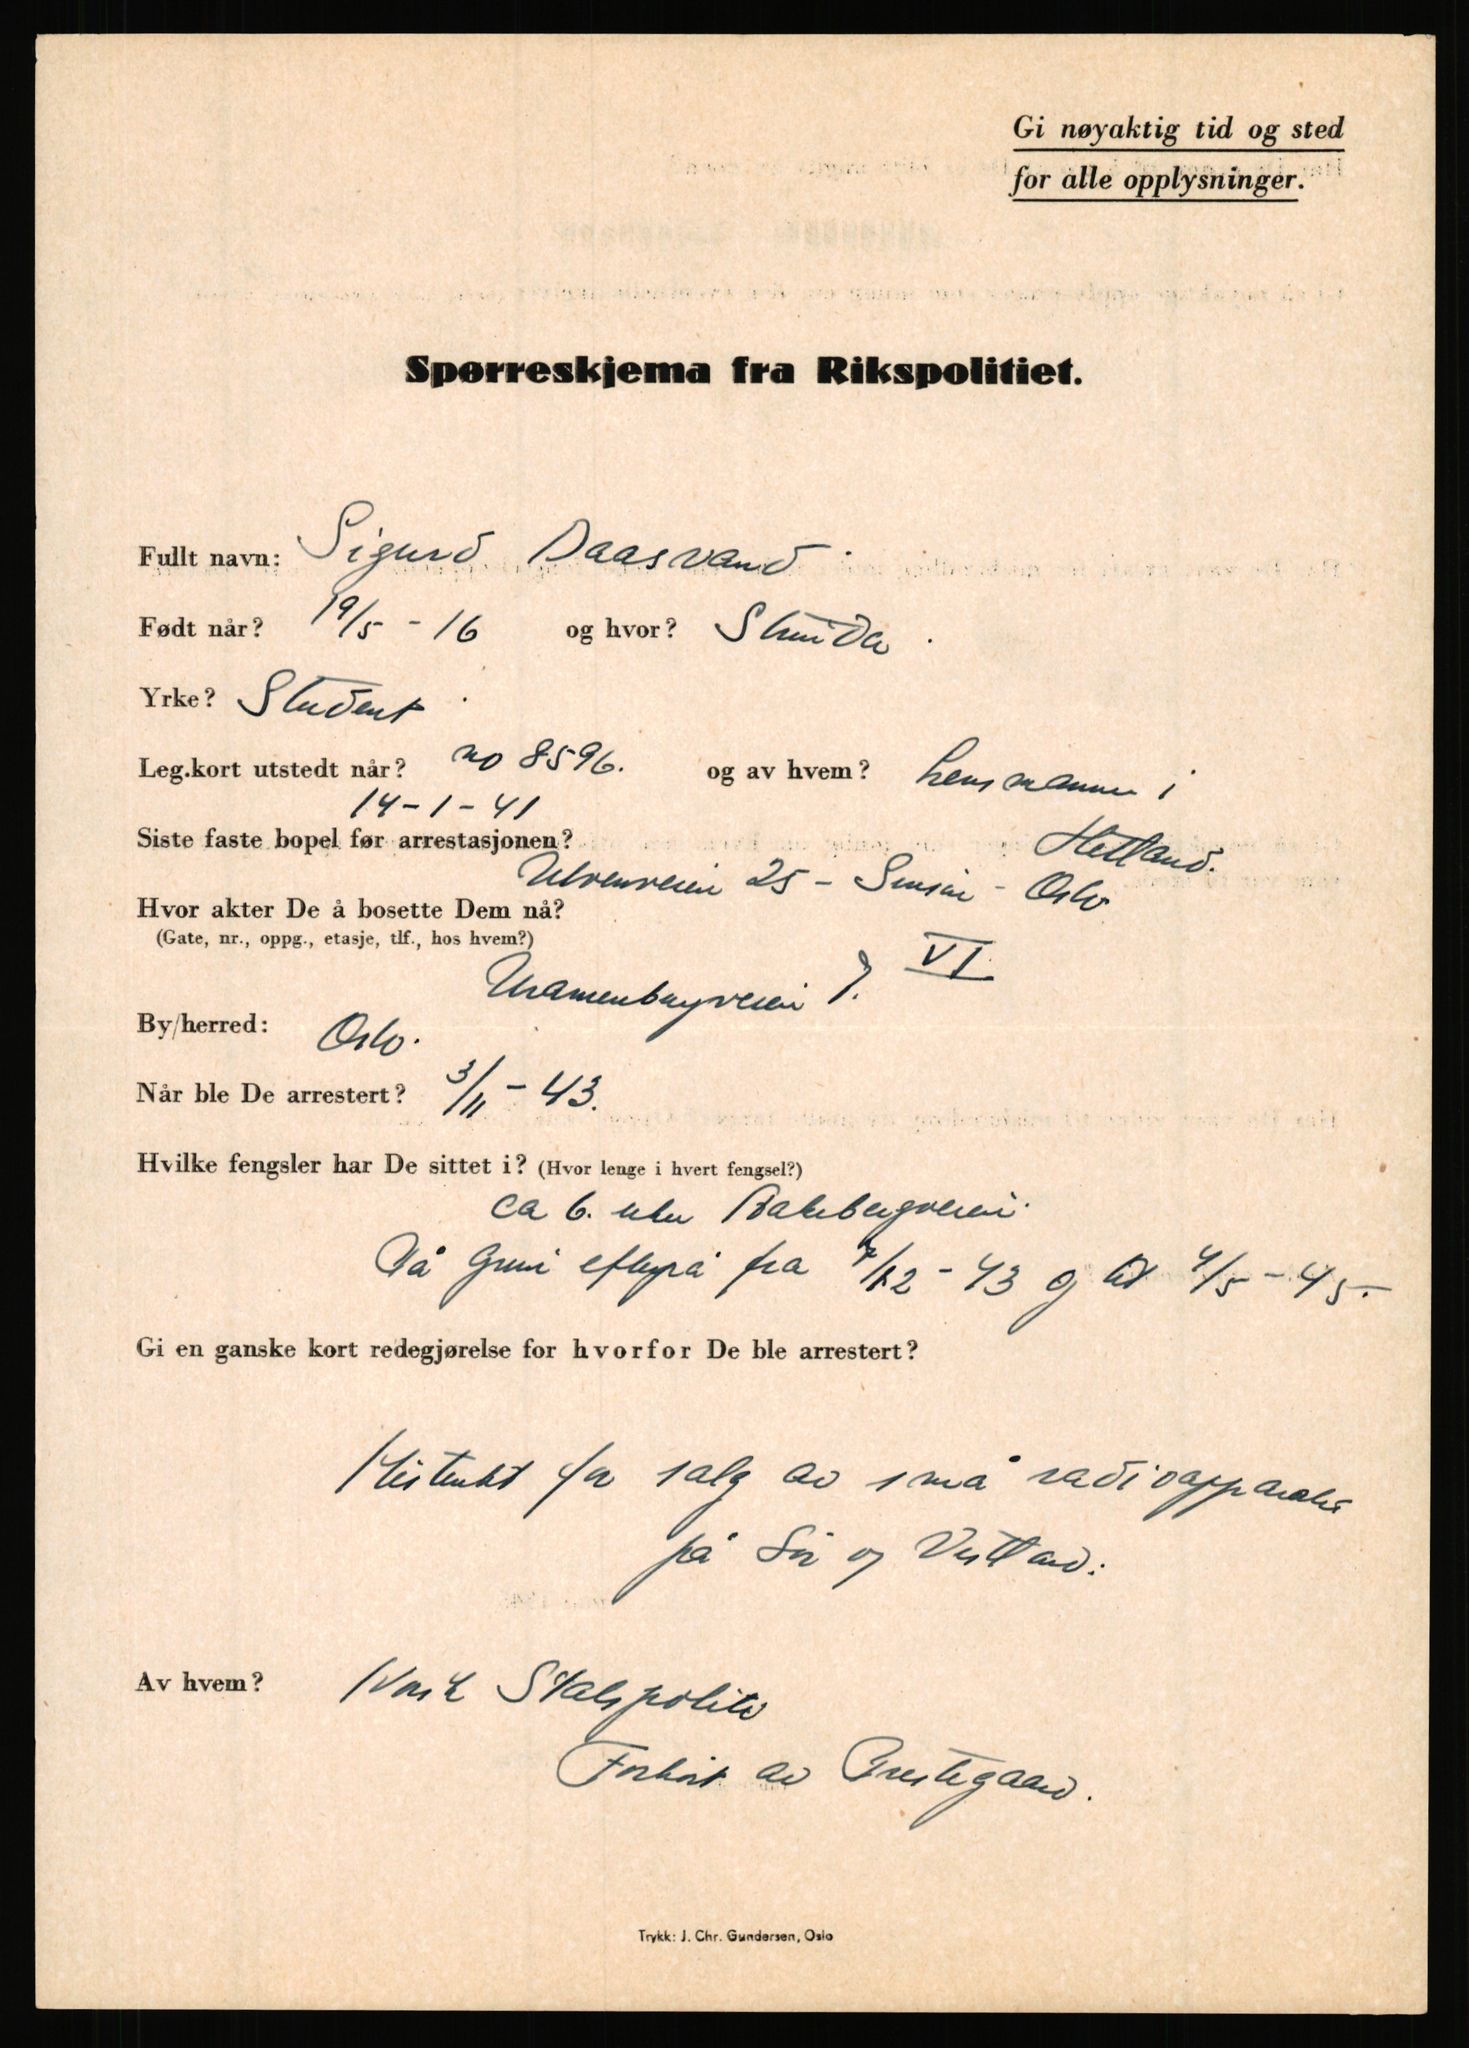 Gi nøyaktig tid og sted
for alle opplysninger.
Spørreskjema fra Rikspolitiet.
Fullt navn: Sigurd Daasvand
Født når? 19/5 - 16 og hvor?
Yrke? Student
Leg.kort utstedt når? no 8596. og av hvem? Lensmannen i
14-1-41
Hetland.
Siste faste bopel før arrestasjonen?
Ulvenveien 25 - Sinsen - Oslo
Hvor akter De å bosette Dem nå?
(Gate, nr., oppg., etasje, tlf., hos hvem?)
Uranienborgveien 7. VI
By/herred: Oslo.
Når ble De arrestert? 3/11 - 43.
Hvilke fengsler har De sittet i? (Hvor lenge i hvert fengsel?)
ca 6. uker
På Grini efterpå fra /12 - 43 og til 4/5 - 45.
Gi en ganske kort redegjørelse for hvorfor De ble arrestert?
Mistenkt for salg av små radioapparater
på Sør og Vestland.
Av hvem? Norsk Statspoliti
Forhørt av Prestegaard.
Trykk: J. Chr. Gundersen, Oslo